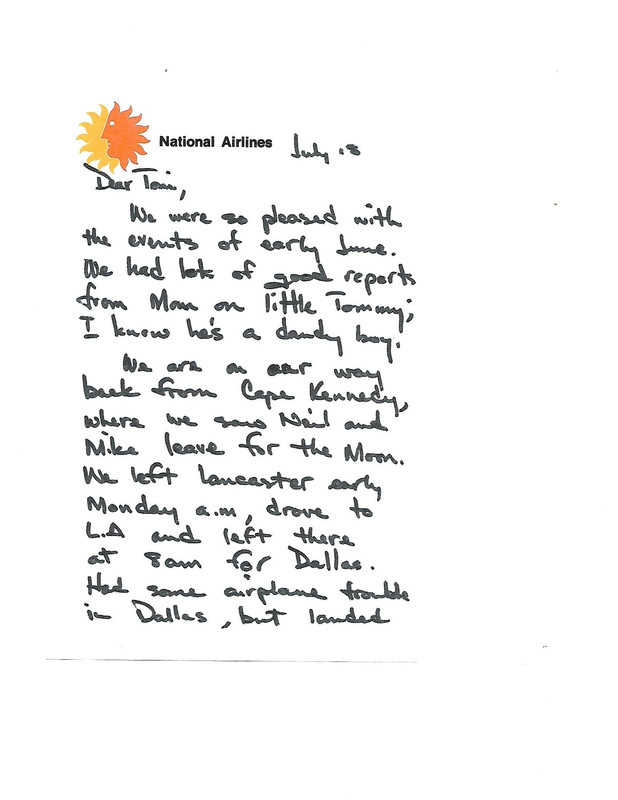 National Airlines July 18
Dear Tom,
We were so pleased with
the events of early June.
We had lots of good reports
from Mom on little Tommy;
I know he's a dandy boy.
We are on our way
back from Cape Kennedy,
where we saw Neil and
Mike leave for the Moon.
We left Lancaster early
Monday a.m, drove to
L.A and left there
at 8am for Dallas.
Had some airplane trouble
in Dallas, but landed